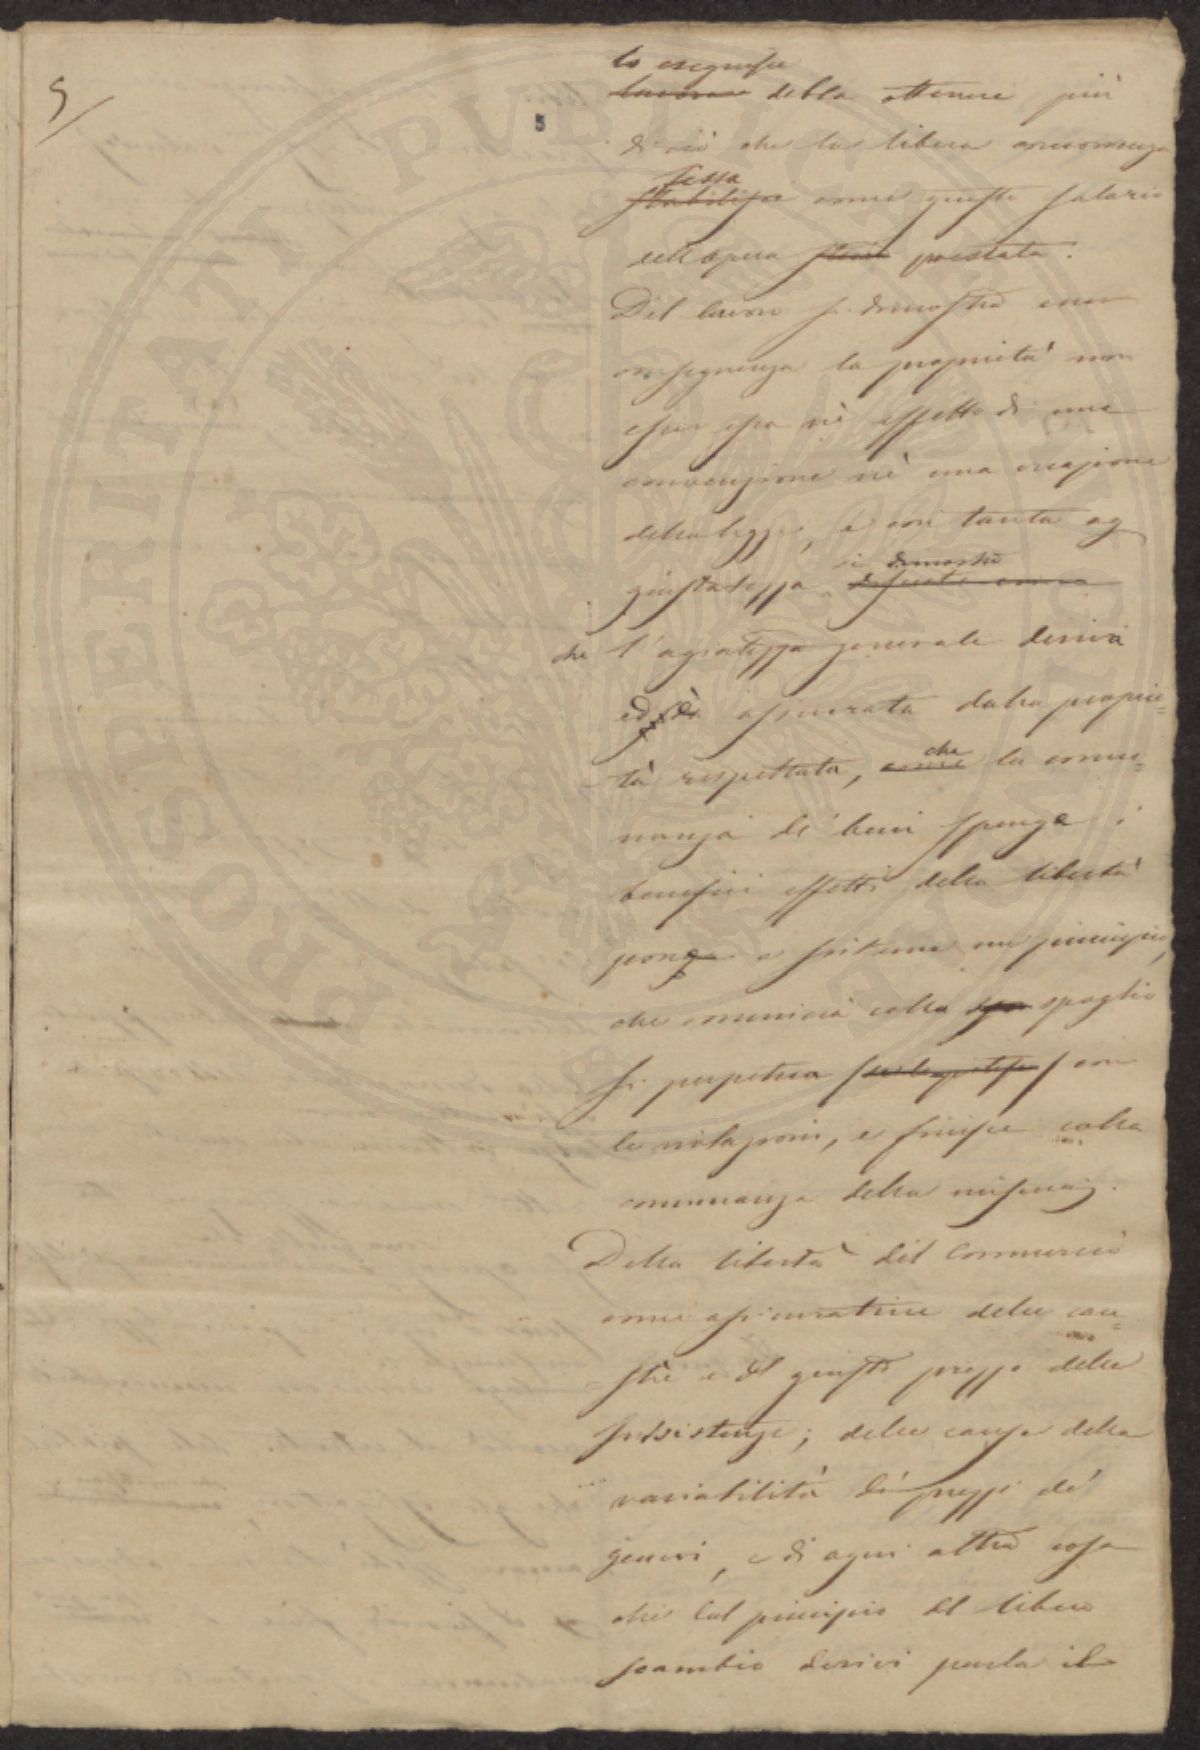 5
5
lo eseguisce
lavora debba ottenere più
di ciò che la libera concorrenza
fissa
stabilisce come giusto salario
dell'opera prestata.
Del lavoro si dimostra come
conseguenza la proprietà non
esser essa nè effetto di una
convenzione nè una creazione
della legge, e con tanta ag
si dimostra
giustatezza
che l'agiatezza generale deriva
ed è assicurata dalla proprie=
che
tà rispettata, come la comu=
nanza de' beni spenga i
benefici effetti della libertà
ponga a sistema un principio,
che comincia colla spo spoglio
si perpetua con
le violazioni, e finisce colla
comunanza della miseria.
Della libertà del Commercio
come assicuratrice delle
e del giusto prezzo delle
sussistenze; delle cause della
variabilità de' prezzi de'
generi, e di ogni altra cosa
che dal principio del libero
scambio derivi parla il
PROSPERITATI PVBLICAE